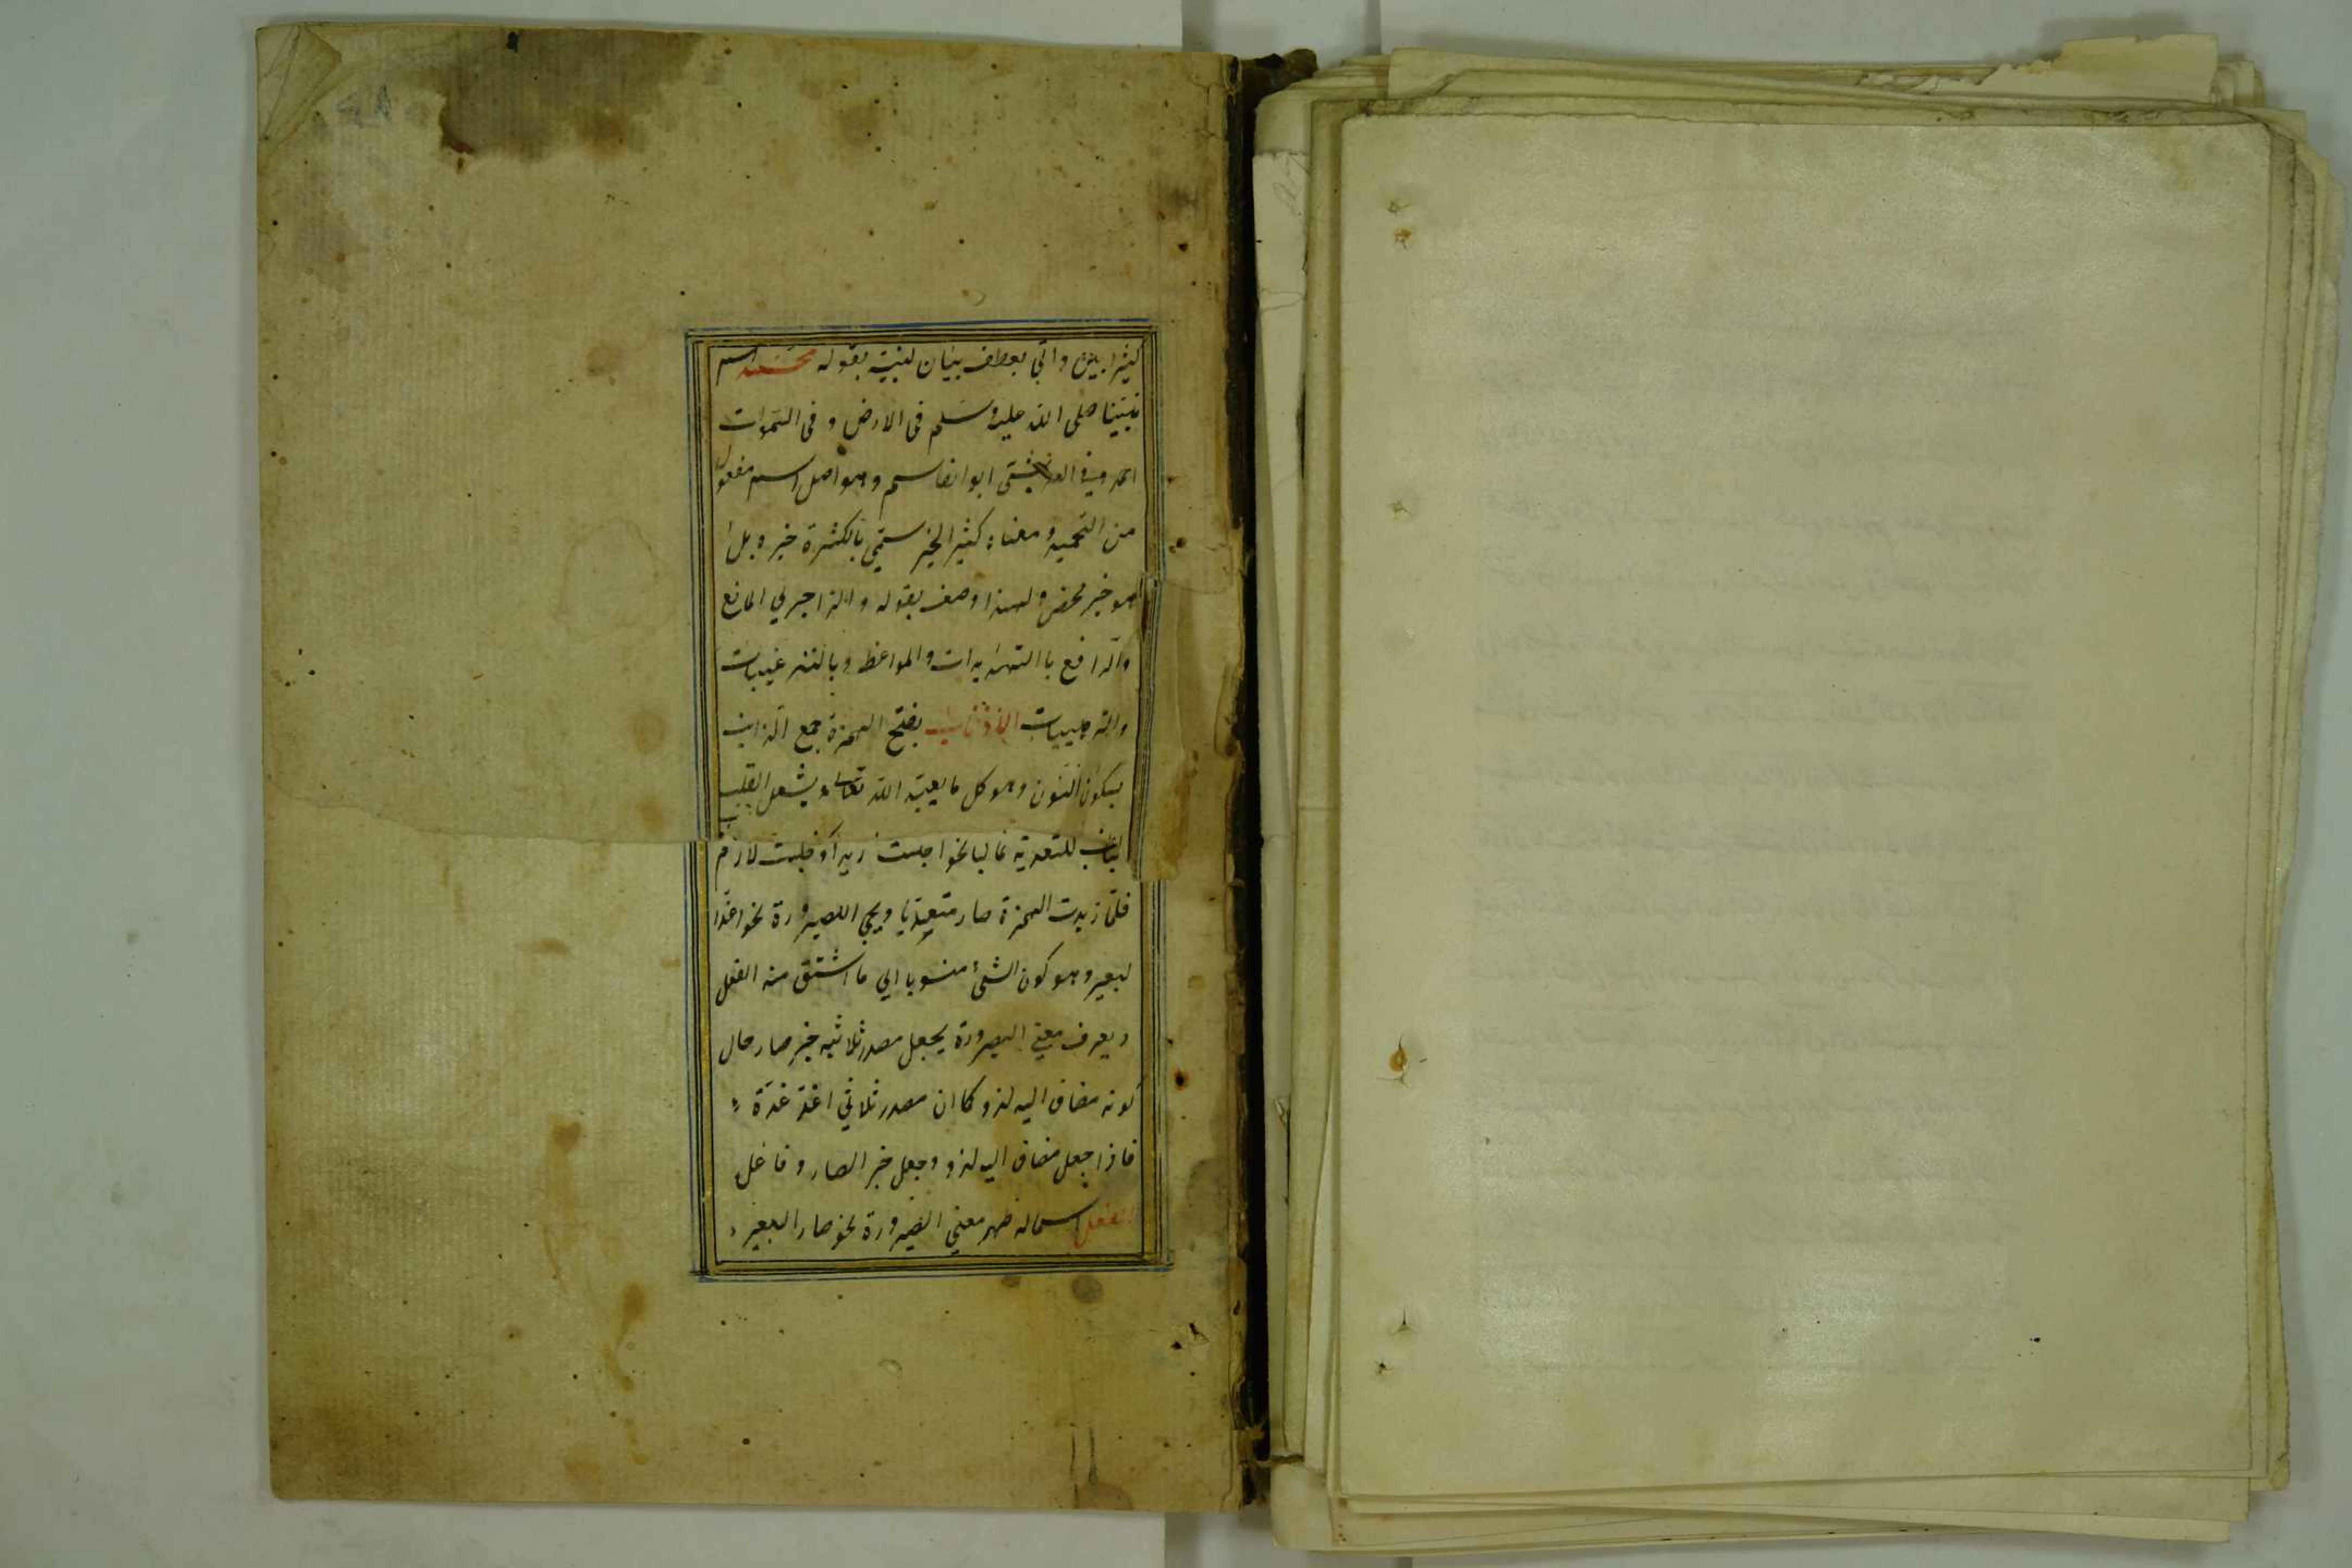 كثيرا بليغا واتى بعطف بيان لنبيه بقوله محمد اسم
نبينا صلى الله عليه وسلم فى الارض و فى السموات
احمد وفى العرش ابوا لقاسم وهو اصل اسم مفعول
من التحميد ومعناه كثير الخير سمّى بالكثرة خيره بل
هو خير محض ولهذا وصف بقوله والزاجر لي المانع
والدافع با التهديدات والمواعظ وبالترغيبات
والترهيبات الأذناب بفتح الهمزة جمع الذنب
بسكون النون وهو كل ما يعيبه الله تعالى ويشغل القلب
للتعدية غالبا نحو اجلست زيدا فجلست لازم
فلمّا زيدت الهمزة صار متعديا ويجئ اللصيرورة نحو اغدا
لبعير وهو كون الشئ منسوبا الي ما اشتق منه الفعل
ويعرف معنى الصيرورة يجعل مصدر ثلاثيه خبر صار حال
كونه مضاف اليه لذو كا ان مصدر ثلاثي اغد غدة
فاذا جعل مضاف اليه لذو وجعل خبر الصار و فاعل
الفعل اسما له ظهر معنى الصيرورة نحو صار البعير